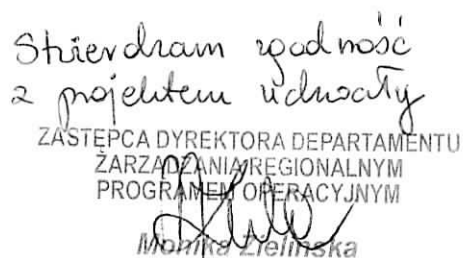 Stwierdzam zgodność
z projektem uchwały
ZASTĘPCA DYREKTORA DEPARTAMENTU
ZARZĄDZANIA REGIONALNYM
PROGRAMEM OPERACYJNYM
Monika Zielińska